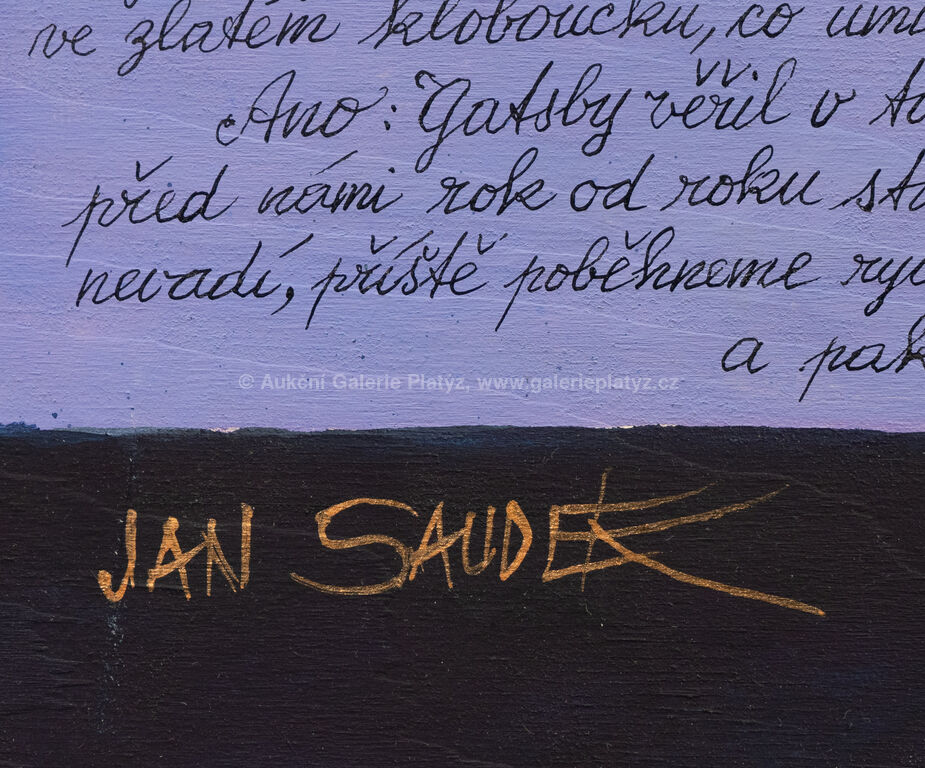 ve zlatém kloboučku, co umí
Ano: Gatsby věřil v
před námi rok od roku
nevadí, příště poběhneme
a pak
© Aukční Galerie Platýz, www.galerieplatyz.cz
JAN SAUDEK